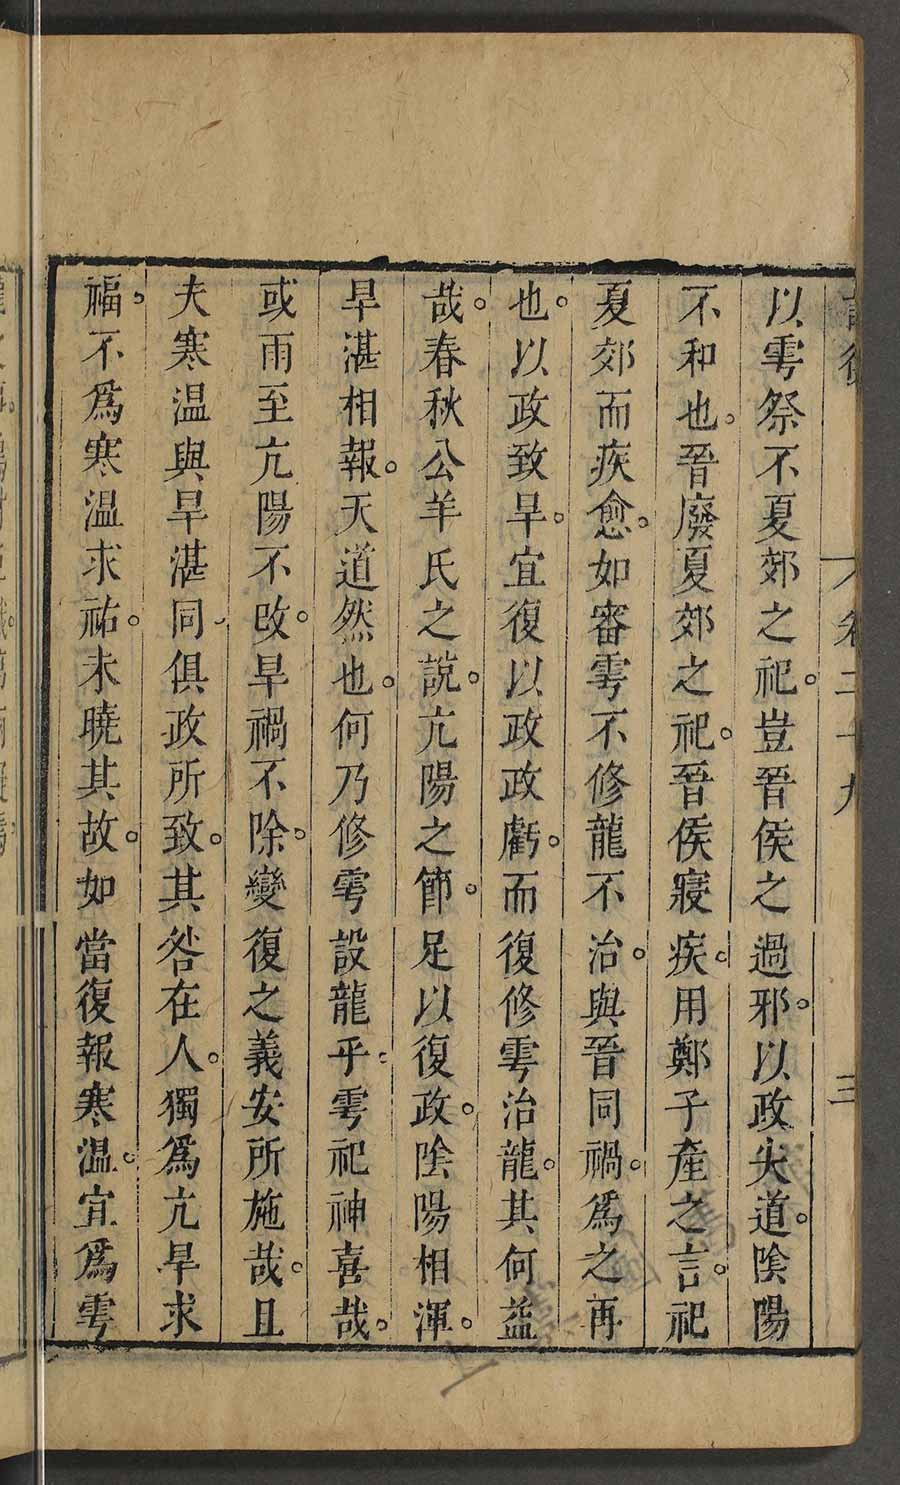 卷二十九
三
以雩祭不夏郊之祀。豈晉侯之過邪。以政失道。陰陽
不和也。晉廢夏郊之祀。晉侯寢疾。用鄭子產之言。祀
夏郊而疾愈。如審雩不修龍不治。與晉同禍。爲之再
也。以政致旱。宜復以政政虧。而復修雩治龍。其何益
哉。春秋公羊氏之說。亢陽之節。足以復政。陰陽相渾。
旱湛相報。天道然也。何乃修雩設龍乎。雩祀神喜哉。
或雨至亢陽不改。旱禍不除。變復之義安所施哉。且
夫寒温與旱湛同、俱政所致。其咎在人。獨爲亢旱求
福、不爲寒温求祐。未曉其故。如當復報寒温。宜爲雩